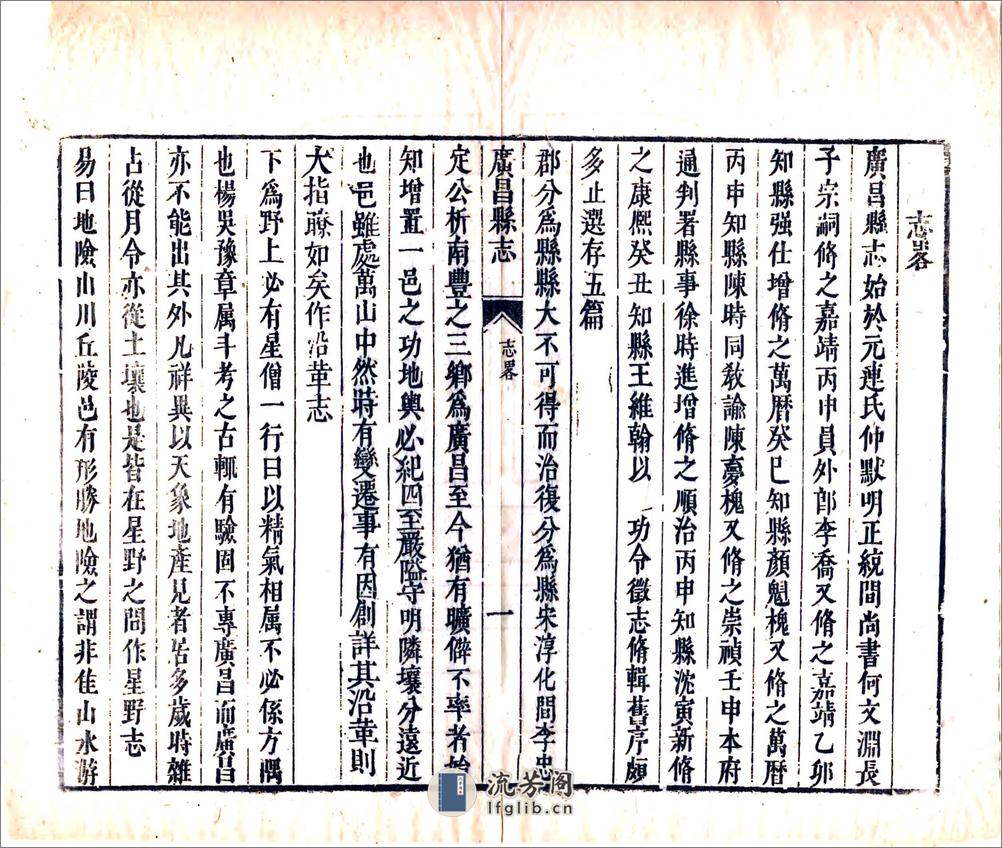 志畧
廣昌縣志始於元連氏仲默明正統間尚書何文淵長
子宗嗣脩之嘉靖丙申員外郎李喬又脩之嘉靖乙卯
知縣強仕增脩之萬曆癸巳知縣顏魁槐又脩之萬曆
丙申知縣陳時同教諭陳夢槐又脩之崇禎壬申本府
通判署縣事徐時進增脩之順治丙申知縣沈寅新脩
之康熙癸丑知縣王維翰以　功令徵志脩輯舊序頗
多止選存五篇
郡分爲縣縣大不可得而治復分爲縣宋淳化間李忠
廣昌縣志　志畧　一
定公析南豐之三鄉爲廣昌至今猶有曠僻不率者始
知增置一邑之功地輿必紀四至嚴隘守明隣壤分遠近
也邑雖處萬山中然時有變遷事有因創詳其沿革則
大指瞭如矣作沿革志
下爲野上必有星僧一行曰以精氣相属不必係方隅
也楊吳豫章属斗考之古輒有驗固不專廣昌而廣昌
亦不能出其外凡祥異以天象地產見者居多歲時雜
占從月令亦從土壤也是皆在星野之間作星野志
易曰地險山川丘陵邑有形勝地險之謂非佳山水游
流芳阁
lfglib.cn